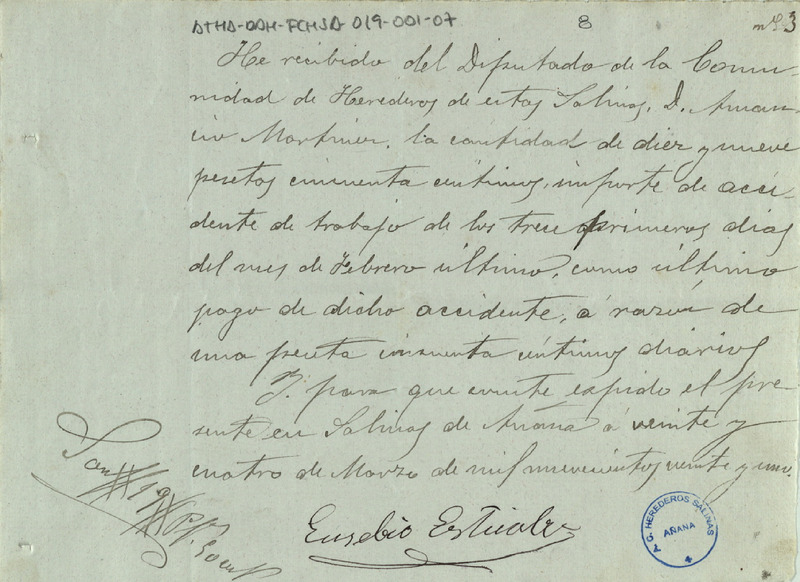 ATHA-DAH-FCHSA-019-001-07
8
nº 3
He recibido del Diputado de la Comu-
nidad de Herederos de estas Salinas, D. Aman-
cio Martinez, la cantidad de diez y nueve
pesetas cincuenta centimos, importe de acci-
dente de trabajo de los trece primeros dias
del mes de Febrero último, como último
pago de dicho accidente, á razon de
una peseta cincuenta céntimos diarios
Y para que conste expido el pre-
sente en Salinas de Añana á veinte y
cuatro de Marzo de mil nuevecientos veinte y uno.
Son 19
Eusebio
C. G. HEREDEROS SALINAS
AÑANA